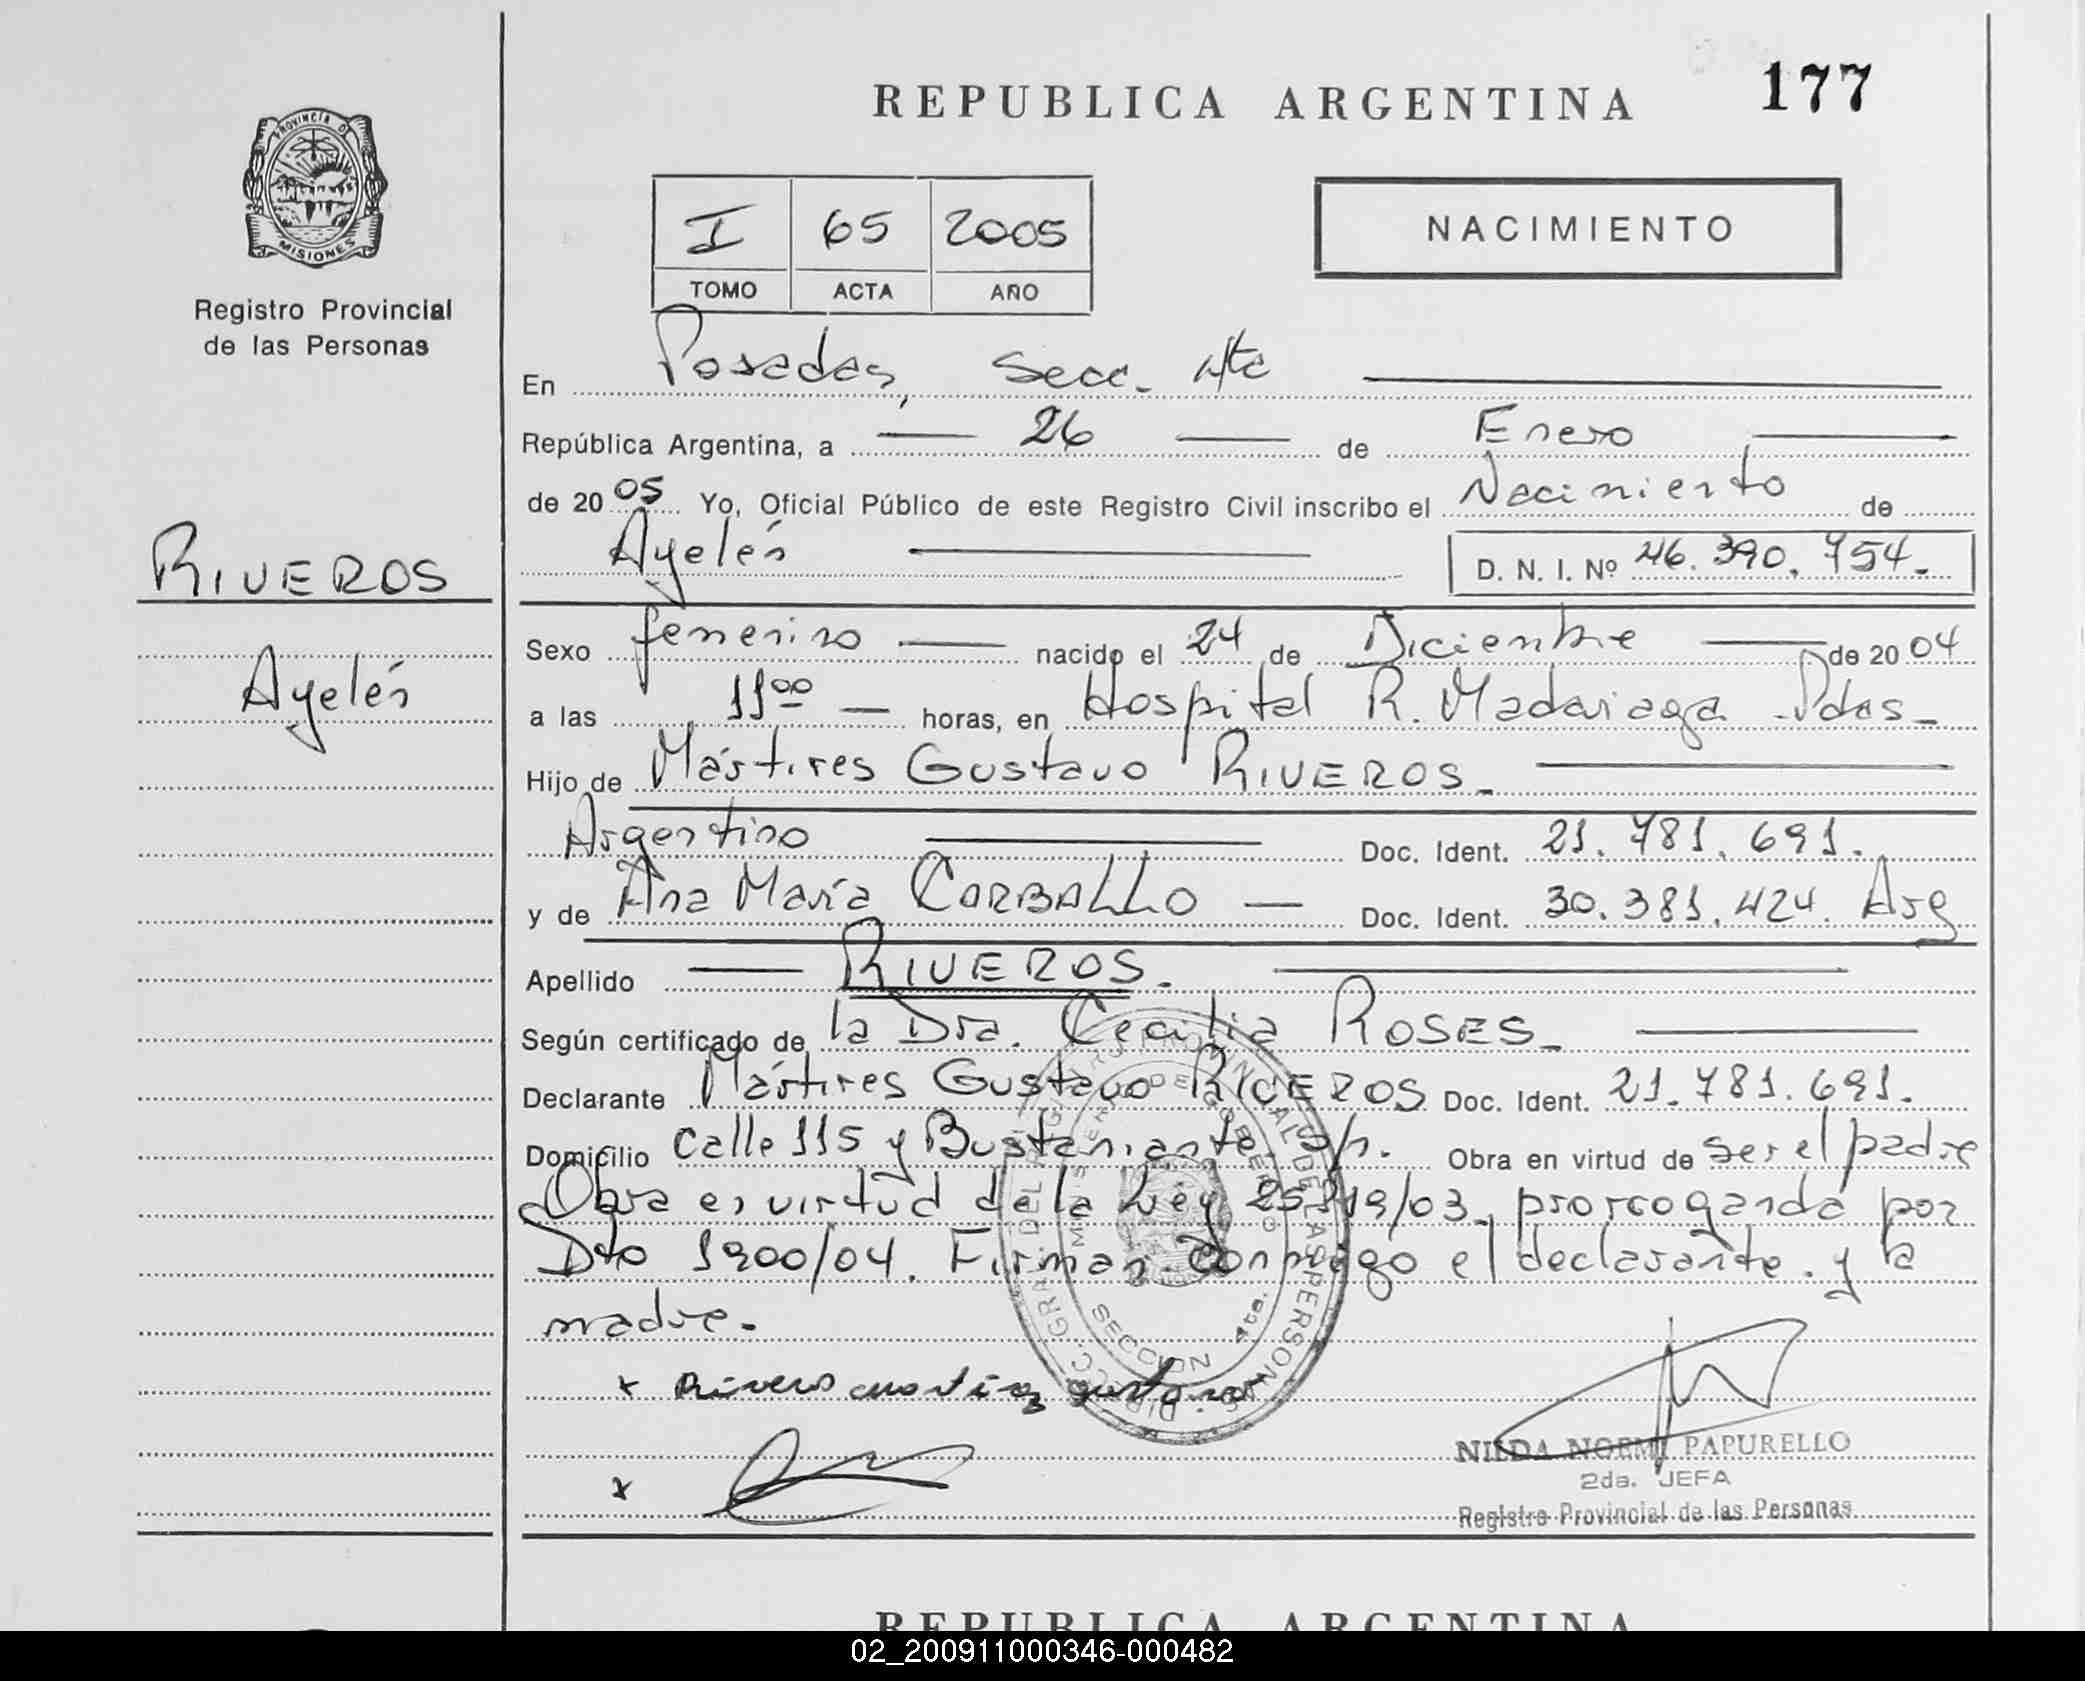 REPUBLICA ARGENTINA 177
PROVINCIA DE
MISIONES
Registro Provincial
de las Personas
I 65 2005
TOMO ACTA AÑO
NACIMIENTO
En Posadas, Secc. 4ta
República Argentina, a 26 de Enero
de 2005 Yo, Oficial Público de este Registro Civil inscribo el Nacimiento de
Ayelén D. N. I. Nº 46.390.754.
RIVEROS
Ayelén
Sexo femenino nacido el 24 de Diciembre de 2004
a las 11 00 horas, en Hospital R. Madariaga Pdas
Hijo de Mártires Gustavo RIVEROS
Argentino Doc. Ident. 21.781.691.
y de Ana María CARBALLO Doc. Ident. 30.381.424. Arg
Apellido RIVEROS.
Según certificado de la Dra. Cecilia ROSES
Declarante Mártires Gustavo RIVEROS Doc. Ident. 21.781.691.
Domicilio Calle 115 y Bustamante s/n. Obra en virtud de ser el padre
Obra en virtud de la Ley 25819/03 prorroganda por
Dto 1900/04. Firman conmigo el declarante. y la
madre.
x Rivero martires gustavo
x
DIRECC. GRAL. DEL REGISTRO PROVINCIAL DE LAS PERSONAS
MINISTERIO DE GOBIERNO
SECCION 4ta.
NILDA NOEMI PAPURELLO
2da. JEFA
Registro Provincial de las Personas
REPUBLICA ARGENTINA
02_200911000346-000482